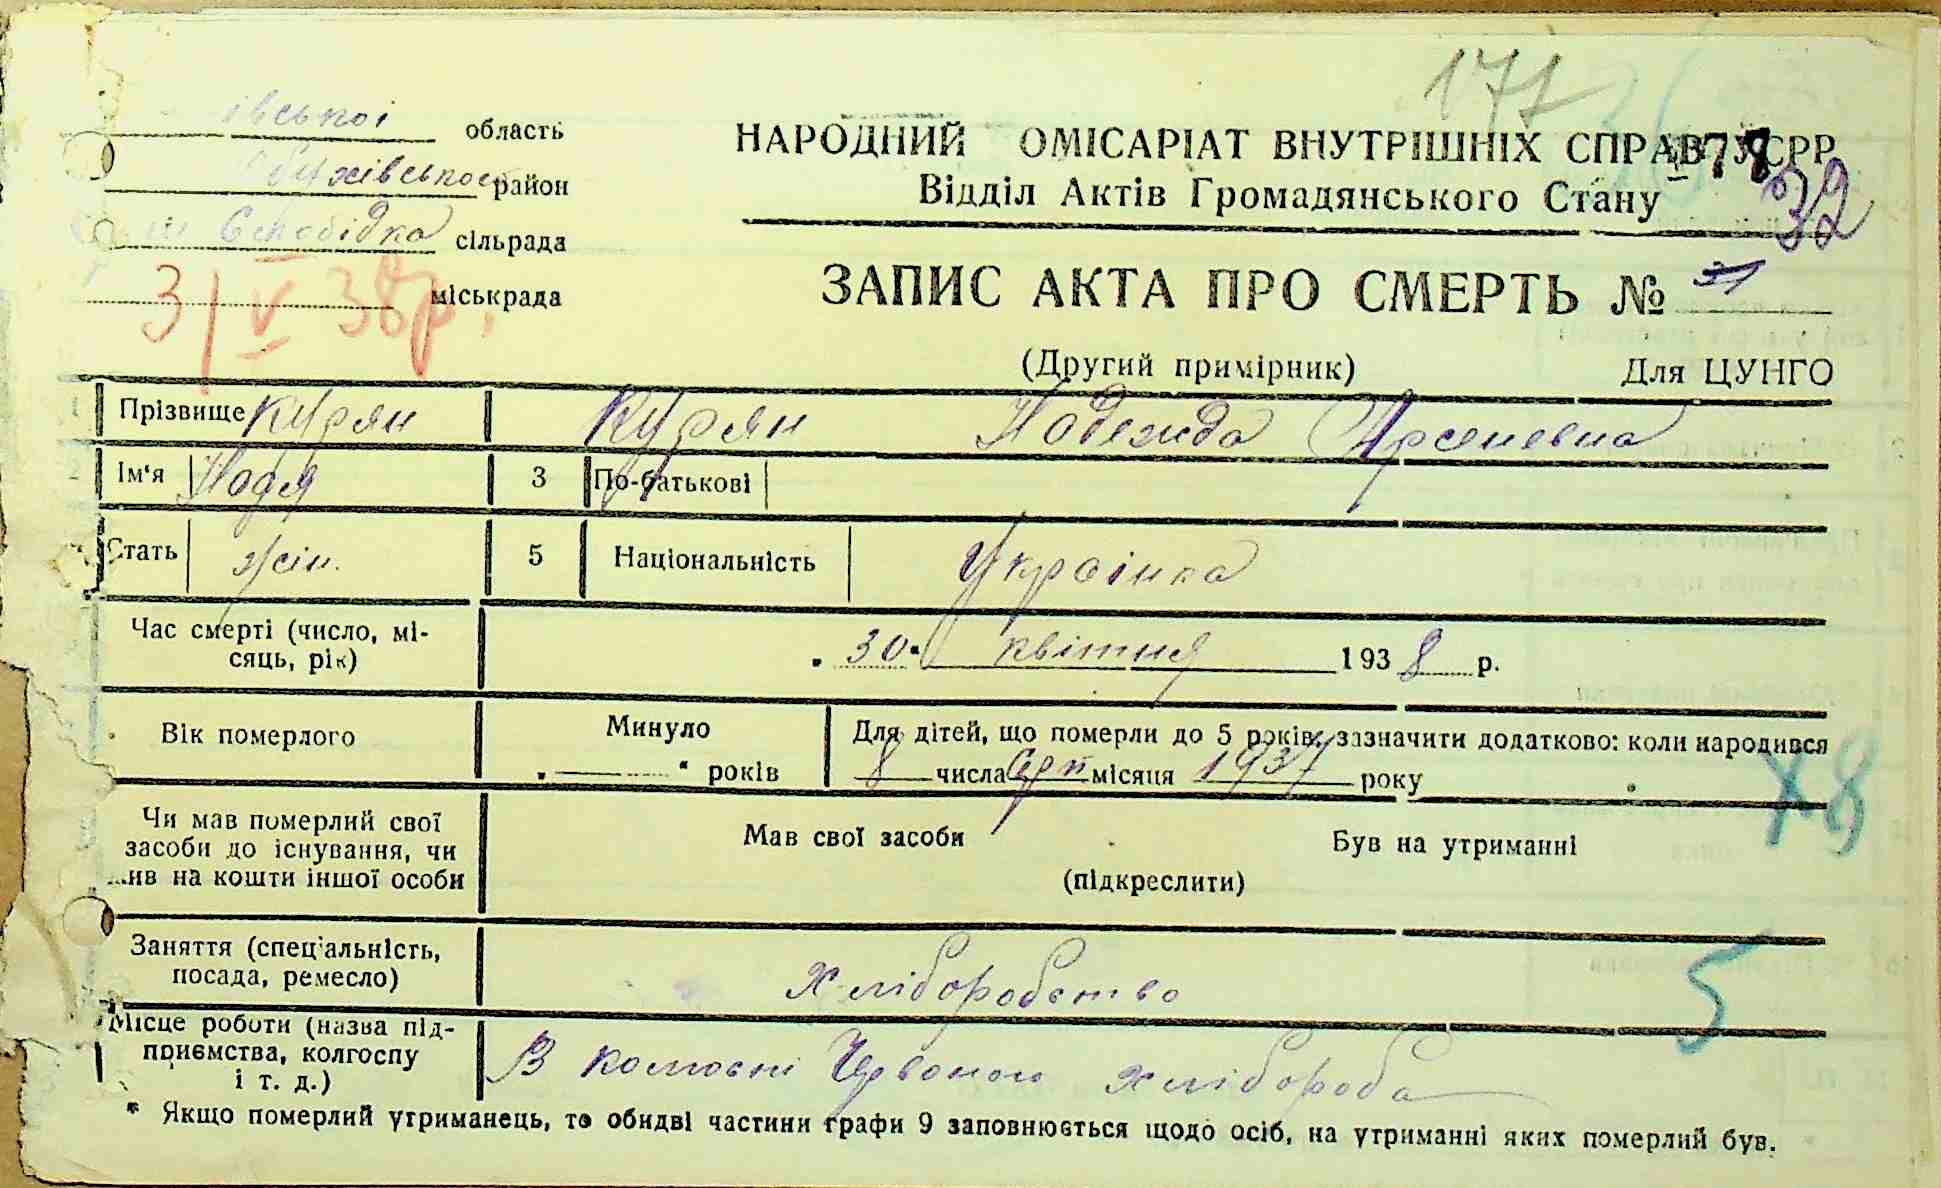 171
івської область
НАРОДНИЙ ОМІСАРІАТ ВНУТРІШНІХ СПРАВ УСРР
78
Обухівської район
Відділ Актів Громадянського Стану
32
Слобідка сільрада
міськрада
31 V 38р.
ЗАПИС АКТА ПРО СМЕРТЬ № 31
(Другий примірник) Для ЦУНГО
Прізвище Курян Курян Надежда Арсеневна
Ім'я Надя 3 По-батькові
Стать жін. 5 Національність Українка
Час смерті (число, мі-
сяць, рік)
30 квітня 1938 р.
Вік померлого Минуло — років
Для дітей, що померли до 5 років, зазначити додатково: коли народився
8 числа Серп місяця 1937 року
48
Чи мав померлий свої
засоби до існування, чи
..ив на кошти іншої особи
Мав свої засоби Був на утриманні
(підкреслити)
Заняття (спеціальність,
посада, ремесло)
хліборобство
5
Місце роботи (назва під-
приємства, колгоспу
і т. д.)
В колгоспі Червоного хлібороба
* Якщо померлий утриманець, то обидві частини графи 9 заповнюється щодо осіб, на утриманні яких померлий був.